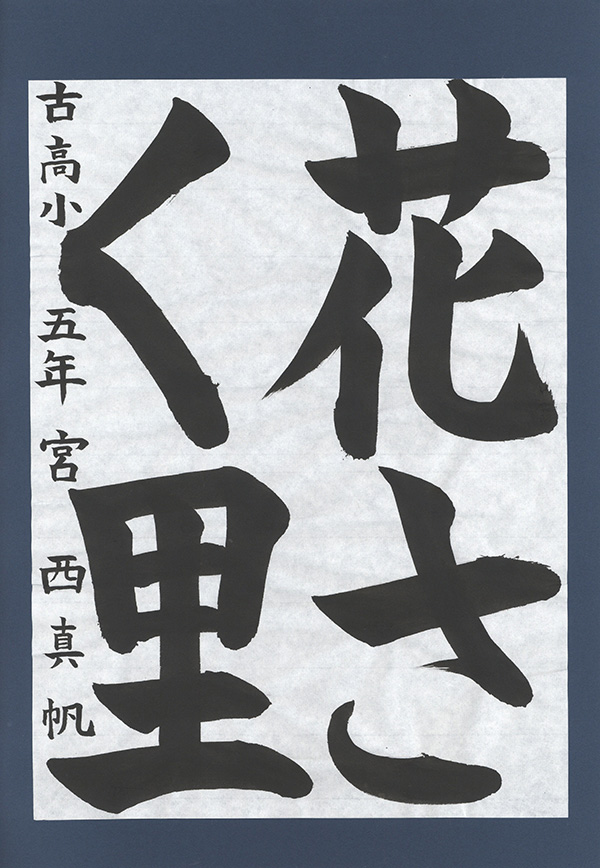 花さ
く里
古高小 五年 宮西真帆